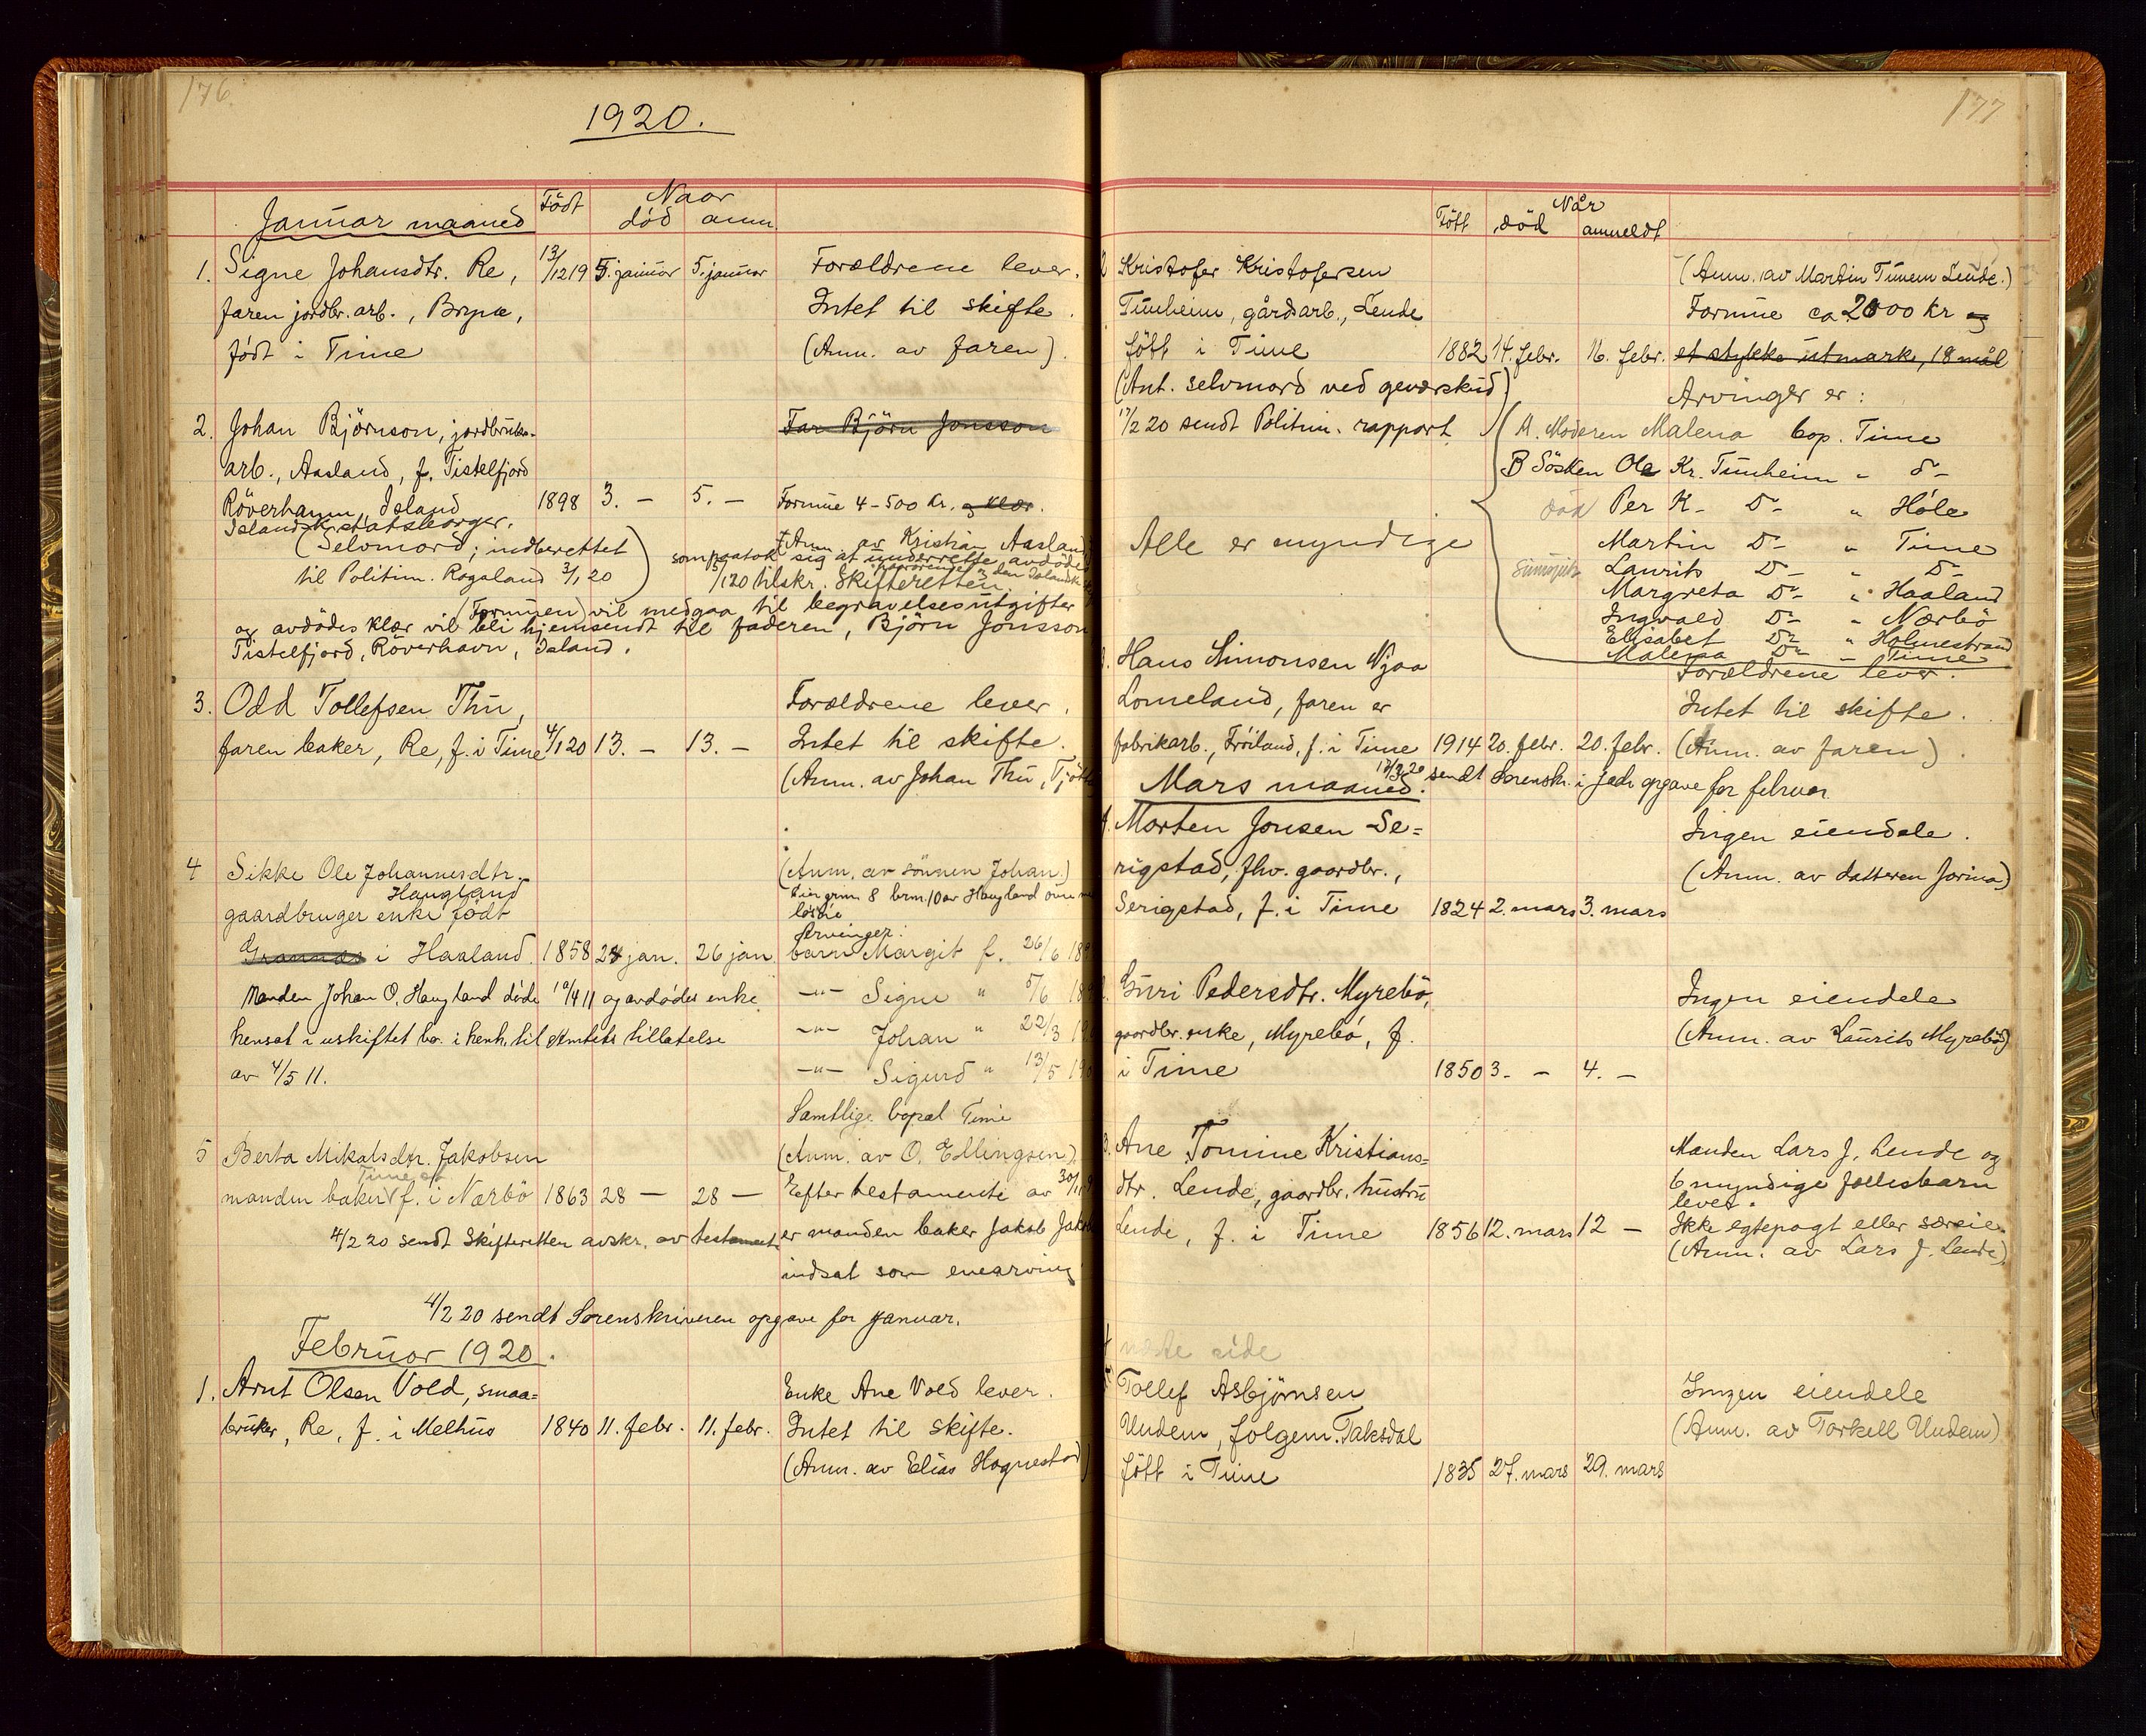 176
1920.
Januar maaned
Född
Naar
död anm.
1. Signe Johansdtr. Re, 13/12 19 5. januar 5. januar Forældrene lever.
faren jordbr. arb., Bryne, Intet til skifte.
født i Time (Anm. av faren).
2. Johan Björnson, jordbruks- Far Björn Jonsson
arb., Aasland, f. Tistelfjord
Röverhamn, Island 1898 3. - 5. - Formue 4-500 Kr. og klær.
Islandsk statsborger.
(Selvmord; indberettet Anm. av Kristian Aasland
til Politim. Rogaland 3/1 20) som paatok sig at underrette avdödes
paarörende den Islandske
5/1 20 tilskr. Skifteretten.
(Formuen) vil medgaa til begravelsesutgifter
og avdödes klær vil bli hjemsendt til faderen, Björn Jonsson
Tistelfjord, Röverhavn, Island.
3. Odd Tollefsen Thu, Forældrene lever.
faren baker, Re, f. i Time 4/1 20 13. - 13. - Intet til skifte.
(Anm. av Johan Thu, Tjött
4 Sikke Ole Johannesdtr. (Anm. av sönnen Johan.)
Haugland Eier grnr. 8 brnr. 10 av Haugland
gaardbruger enke født løsøre
Arvinger:
Grannes i Haaland. 1858 24 jan. 26 jan barn Margit f. 26/6 18
Manden Johan O. Haugland døde 10/4 11 og avdødes enke -"- Signe " 5/6 18
hensat i uskiftet bo i henh. til Amtets tillatelse -"- Johan " 22/3 19
av 4/5 11. -"- Sigurd " 13/5 190
Samtlige bopæl Time
5 Berta Mikalsdtr. Jakobsen (Anm. av O. Ellingsen).
Time st.
manden baker f. i Nærbö 1863 28 - 28 - Efter testamente av 30/11
4/2 20 sendt Skifteretten avskr. av testament er manden baker Jakob Jakob
indsat som enearving
4/2 20 sendt Sorenskriveren opgave for januar.
Februar 1920.
1. Arnt Olsen Vold, smaa= Enke Ane Vold lever.
bruker, Re, f. i Melhus 1840 11. febr. 11. febr. Intet til skifte.
(Anm. av Elias Hognestad)
177
Født
Når
död anmeldt
2 Kristofer Kristofersen (Anm. av Martin Tunem Lende.)
Tunheim, gårdsarb., Lende Formue ca 2000 Kr og
fött i Time 1882 14. febr. 16. febr. et stykke utmark, 18 mål
(Ant. selvmord ved geværskud) Arvinger er:
17/2 20 sendt Politim. rapport A. Moderen Malena bop. Time
B Søsken Ole Kr. Tunheim " d-
død Per K- D- " Høle
Alle er myndige Martin D- " Time
Laurits D- " D-
Margreta D- " Haaland
Ingvald D- " Nærbö
Elisabet D- " Holmestrand
Malena D- - Time
3. Hans Simonsen Njaa Forældrene lever.
Lomeland, faren er Intet til skifte.
fabrikarb., Fröiland, f. i Time 1914 20. febr. 20. febr. (Anm. av faren).
Mars maaned. 12/3 20 sendt Sorenskr. i Jædr opgave for februar.
1. Morten Jonsen Se= Ingen eiendele.
rigstad, fhv. gaardbr., (Anm. av datteren Jorina)
Serigstad, f. i Time 1824 2. mars 3. mars
2. Guri Pedersdtr. Myrebö, Ingen eiendele
gaardbr. enke, Myrebö, f. (Anm. av Laurits Myrebö)
i Time 1850 3. - 4. -
3. Ane Tomine Kristians= Manden Lars J. Lende og
dtr. Lende, gaardbr. hustru 6 myndige fællesbarn
lever.
Lende, f. i Time 1856 12. mars 12 - Ikke egtepagt eller særeie.
(Anm. av Lars J. Lende)
4 næste side
5 Tollef Asbjørnsen Ingen eiendele
Undem, folgem. Taksdal (Anm. av Torkell Undem)
fött i Time 1835 27. mars 29. mars